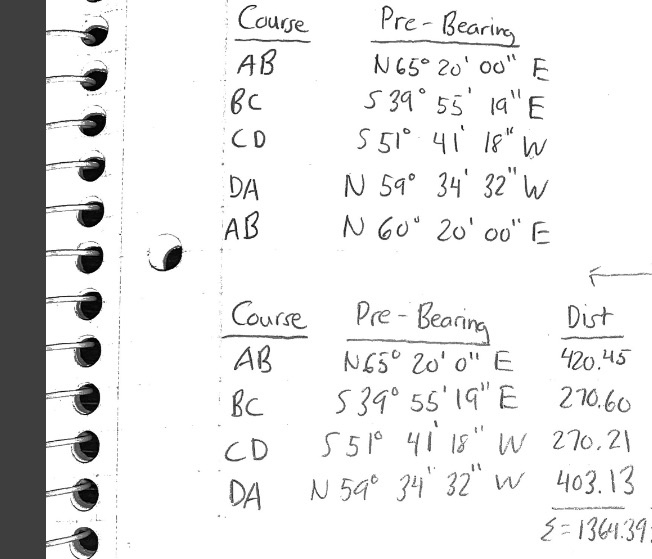 Course Pre-Bearing
AB N 65° 20' 00" E
BC S 39° 55' 19" E
CD S 51° 41' 18" W
DA N 59° 34' 32" W
AB N 60° 20' 00" E
Course Pre-Bearing Dist
AB N 65° 20' 0" E 420.45
BC S 39° 55' 19" E 270.60
CD S 51° 41' 18" W 270.21
DA N 59° 34" 32" W 403.13
Σ = 1364.39